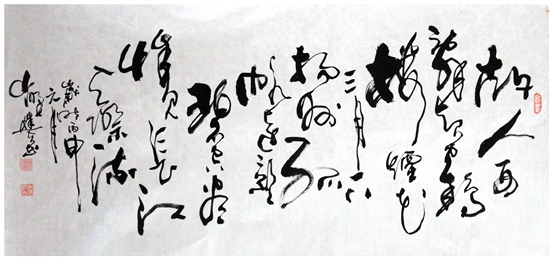 故人西
辞黄鹤
楼煙花
三月下
扬州孤
帆远影
碧空尽
惟见长江
天际流
歲時丙申
元月